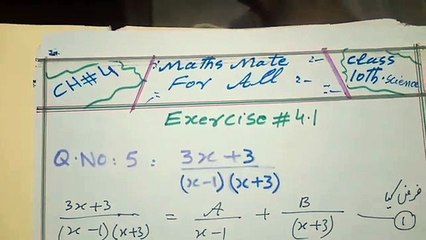 CH#4
Maths Mate For All
Class 10th. Science
Exercise #4.1
Q.No: 5 : (3x+3)/((x-1)(x+3))
فرض کیا
(3x+3)/((x-1)(x+3)) = A/(x-1) + B/(x+3) ①